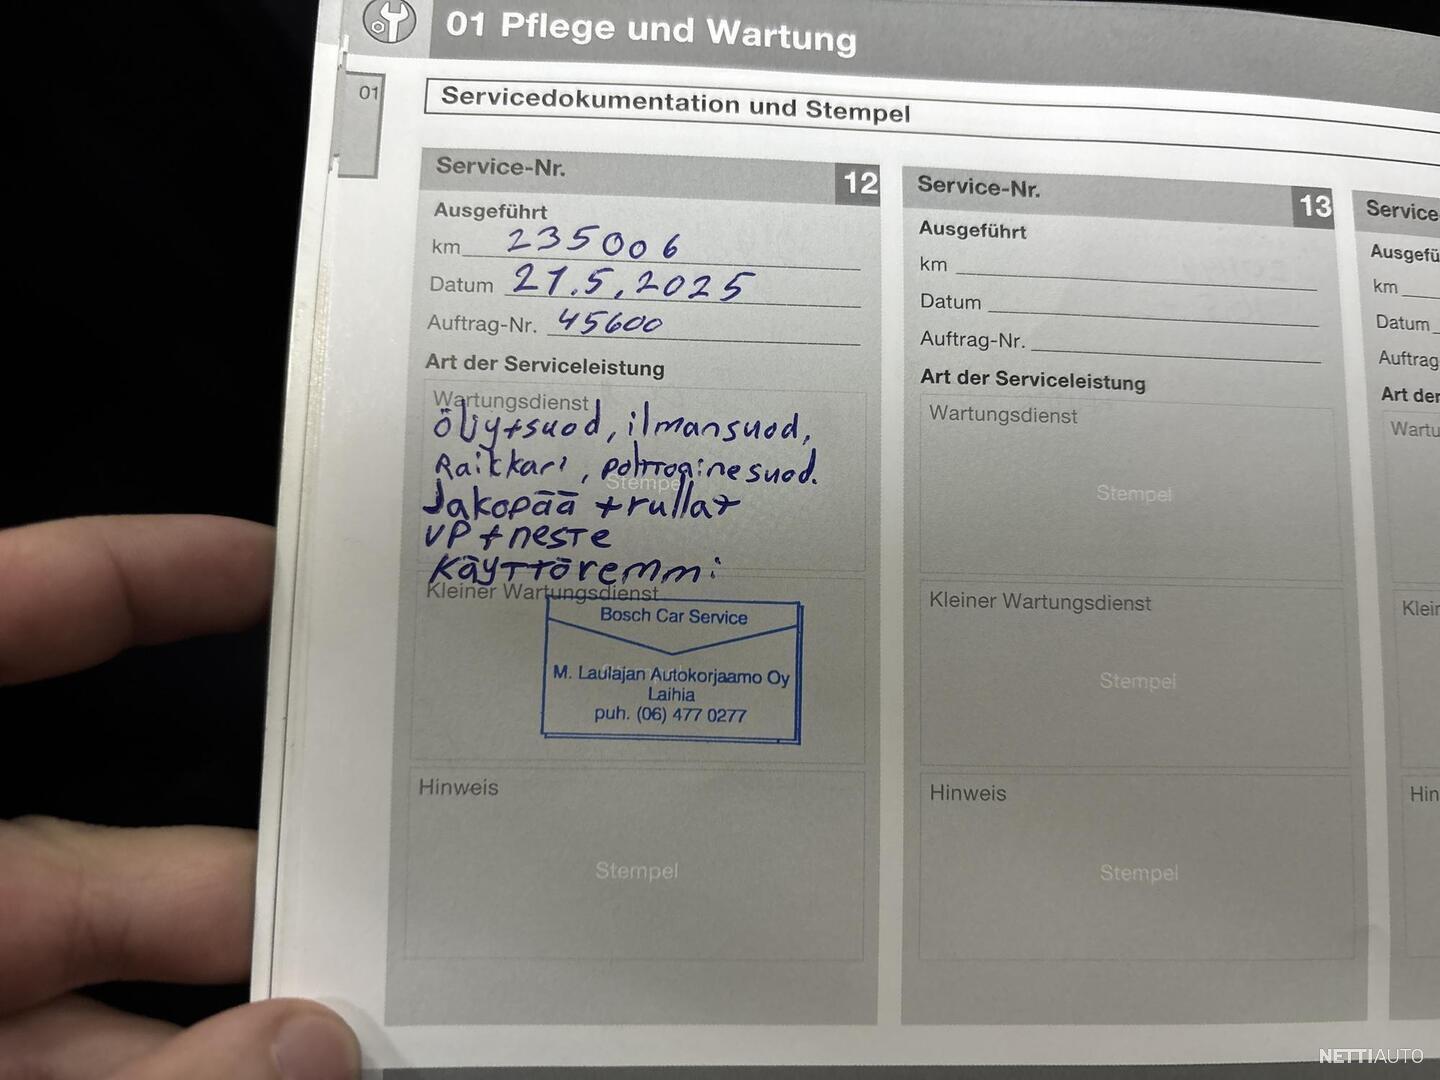 01 Pflege und Wartung
01
Servicedokumentation und Stempel
Service-Nr. 12
Ausgeführt
km 235006
Datum 21.5.2025
Auftrag-Nr. 45600
Art der Serviceleistung
Wartungsdienst
Öljy+suod, ilmansuod,
Raikkari, polttoainesuod.
Stempel
Jakopää + rullat
VP + neste
Käyttöremmi
Kleiner Wartungsdienst
Bosch Car Service
M. Laulajan Autokorjaamo Oy
Laihia
puh. (06) 477 0277
Hinweis
Stempel
Service-Nr. 13
Ausgeführt
km
Datum
Auftrag-Nr.
Art der Serviceleistung
Wartungsdienst
Stempel
Kleiner Wartungsdienst
Stempel
Hinweis
Stempel
Service
Ausgefü
km
Datum
Auftrag
Art der
Wartu
Klein
Hin
NETTIAUTO